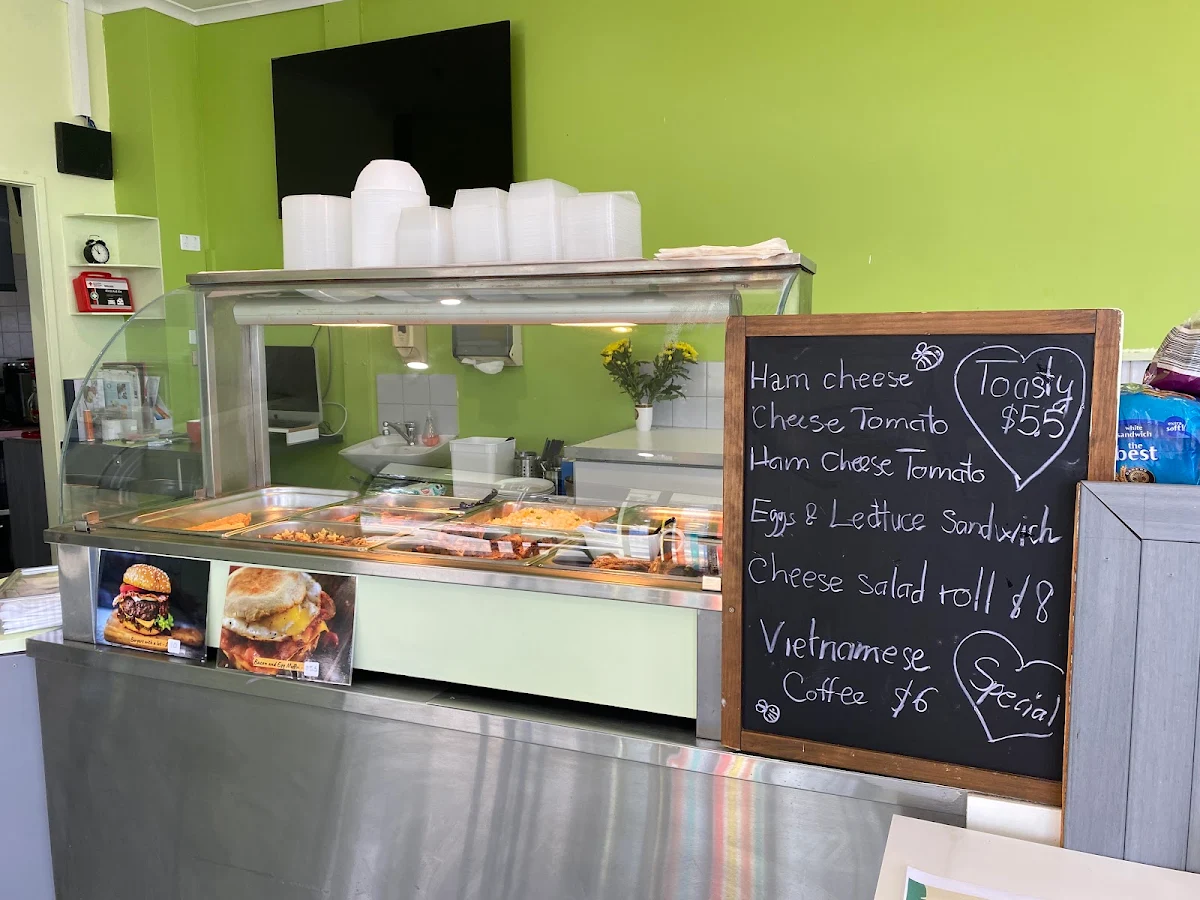 Ham cheese
Cheese Tomato
Ham Cheese Tomato
Toasty
$5.5
Eggs & Ledttuce Sandwich
Cheese salad roll $8
Vietnamese
Coffee $6
Special
white
sandwich
the
best
Bacon and Egg Muffin